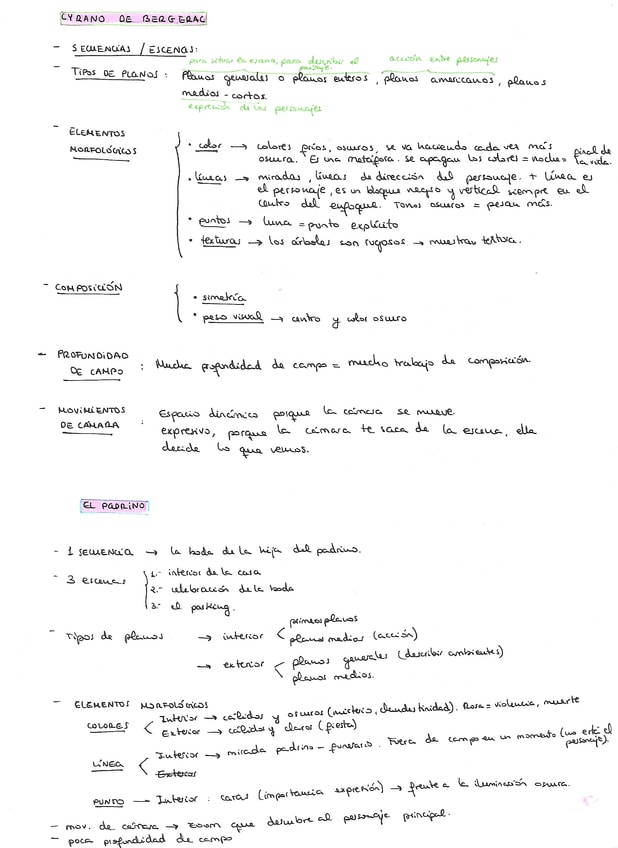 CYRANO DE BERGERAC
- SECUENCIAS / ESCENAS:
para situar la escena, para describir el paisaje. acción entre personajes
- TIPOS DE PLANOS : Planos generales o planos enteros, planos americanos, planos
medios - cortos.
expresión de los personajes
- ELEMENTOS MORFOLÓGICOS
• color → colores fríos, oscuros, se va haciendo cada vez más
oscura. Es una metáfora. se apagan los colores = noche = final de la vida.
• líneas → miradas, líneas de dirección del personaje. + línea es
el personaje, es un bloque negro y vertical siempre en el
centro del enfoque. Tonos oscuros = pesan más.
• puntos → luna = punto explícito
• texturas → los árboles son rugosos → muestran textura.
- COMPOSICIÓN
• simetría
• peso visual → centro y color oscuro
- PROFUNDIDAD DE CAMPO : Mucha profundidad de campo = mucho trabajo de composición
- MOVIMIENTOS DE CÁMARA : Espacio dinámico porque la cámara se mueve
expresivo, porque la cámara te saca de la escena, ella
decide lo que vemos.
EL PADRINO
- 1 SECUENCIA → la boda de la hija del padrino.
- 3 escenas
1.- interior de la casa
2.- celebración de la boda
3.- el parking.
- Tipos de planos → interior < primeros planos
planos medios (acción)
→ exterior < planos generales (describir ambientes)
planos medios.
- ELEMENTOS MORFOLÓGICOS
COLORES < Interior → cálidos y oscuros (misterio, clandestinidad). Rosa = violencia, muerte
Exterior → cálidos y claros (fiesta)
LÍNEA < Interior → mirada padrino - funerario. Fuera de campo en un momento (no está el personaje).
Exterior
PUNTO — Interior : caras (importancia expresión) → frente a la iluminación oscura.
- mov. de cámara → zoom que descubre al personaje principal.
- poca profundidad de campo